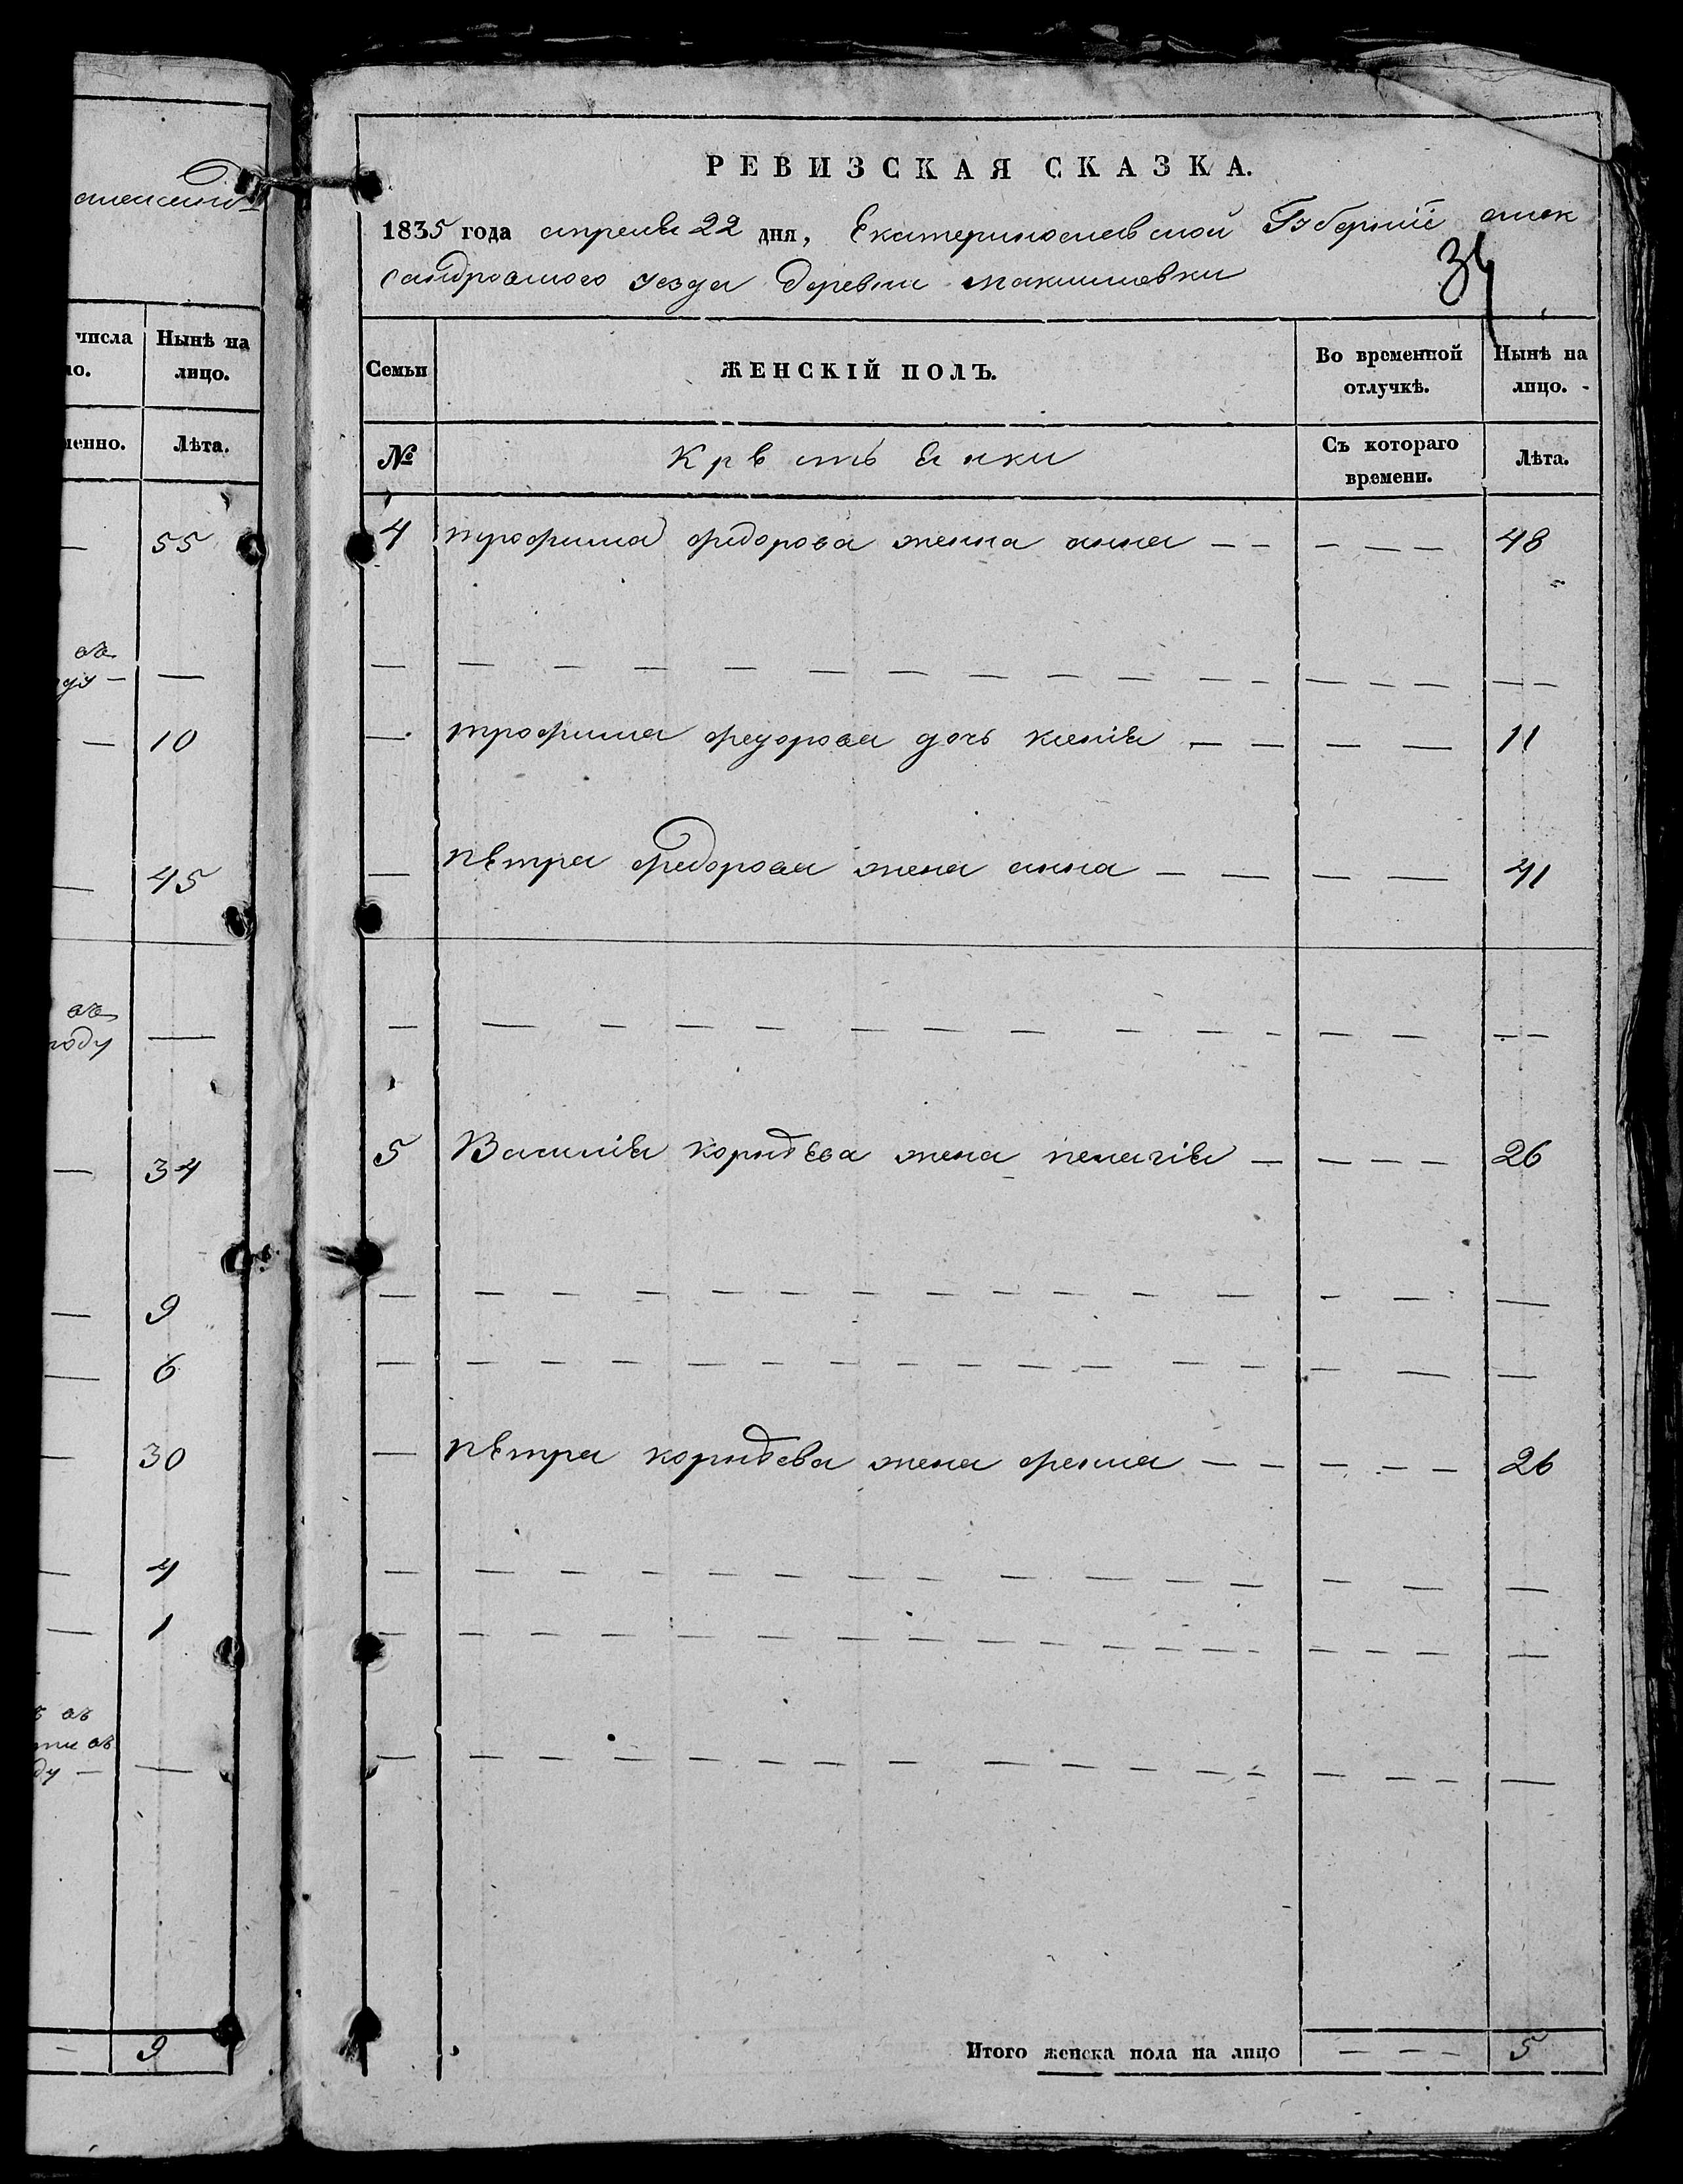 числа
Нынѣ на
лицо.
Лѣта.
55
10
45
въ
году
34
9
6
30
4
1
въ
9
РЕВИЗСКАЯ СКАЗКА.
1835 года апреля 22 дня, Екатеринославской Губерніи алек
сандровского уезда деревни максимовки
Семьи
ЖЕНСКІЙ ПОЛЪ.
Во временной
отлучкѣ.
Нынѣ на
лицо.
№
Крѣстьянки
Съ котораго
времени.
Лѣта.
4 трофима федорова женна анна — — — — — 48
— — — — — — — — — — — — — — — — —
— трофима федорова дочь ксенія — — — — 11
— пѣтра федорова жена анна — — — — 41
— — — — — — — — — — — — — — — —
5 Василія корнѣева жена пелагія — — — — 26
— — — — — — — — — — — — — — —
— — — — — — — — — — — — — — — —
— пѣтра корнѣева жена фекла — — — — — 26
— — — — — — — — — — — — — —
— — — — — — — — — — — — — — — — —
— — — — — — — — — — — — — — — —
Итого женска пола на лицо — — — 5